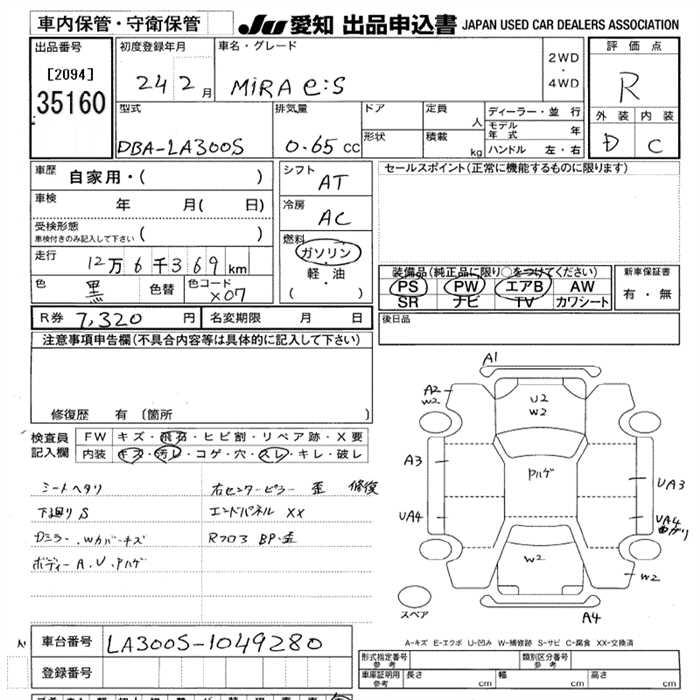 車内保管・守衛保管
JU 愛知 出品申込書 JAPAN USED CAR DEALERS ASSOCIATION
出品番号
[2094]
35160
初度登録年月
24 2 月
車名・グレード
MiRA e:S
2WD
・
4WD
評価点
R
外装 内装
D C
型式
DBA-LA300S
排気量
0.65 cc
ドア
形状
定員 人
積載 kg
ディーラー・並行
モデル年式 年
ハンドル 左・右
車歴 自家用・( )
車検 年 月( 日)
受検形態
車検付きのみ記入して下さい ( )
走行 12万6千369km
色 黒 色替 色コード X07
シフト AT
冷房 AC
燃料
ガソリン
・
軽・油
( )
セールスポイント(正常に機能するものに限ります)
装備品(純正品に限り○をつけてください)
PS PW エアB AW
SR ナビ TV カワシート
新車保証書
有・無
R券 7,320 円 名変期限 月 日
後日品
注意事項申告欄(不具合内容等は具体的に記入して下さい)
修復歴 有 〔箇所 〕
検査員
記入欄
FW キズ・飛石・ヒビ割・リペア跡・X要
内装 キズ・汚レ・コゲ・穴・スレ・キレ・破レ
シートヘタリ
下廻りS
Dミラー、Wカバーキズ
ボディーA.U.Pハゲ
右センターピラー 歪 修復
エンドパネル XX
Rフロア BP・歪
A1
A2
W2
U2
W2
A3
Pハゲ
UA3
UA4
UA4
W2
W2
A4
スペア
A-キズ E-エクボ U-凹み W-補修跡 S-サビ C-腐食 XX-交換済
車台番号 LA300S-1049280
登録番号
形式指定番号
参考
類別区分番号
参考
車庫証明用
参考
長さ cm 幅 cm 高さ cm